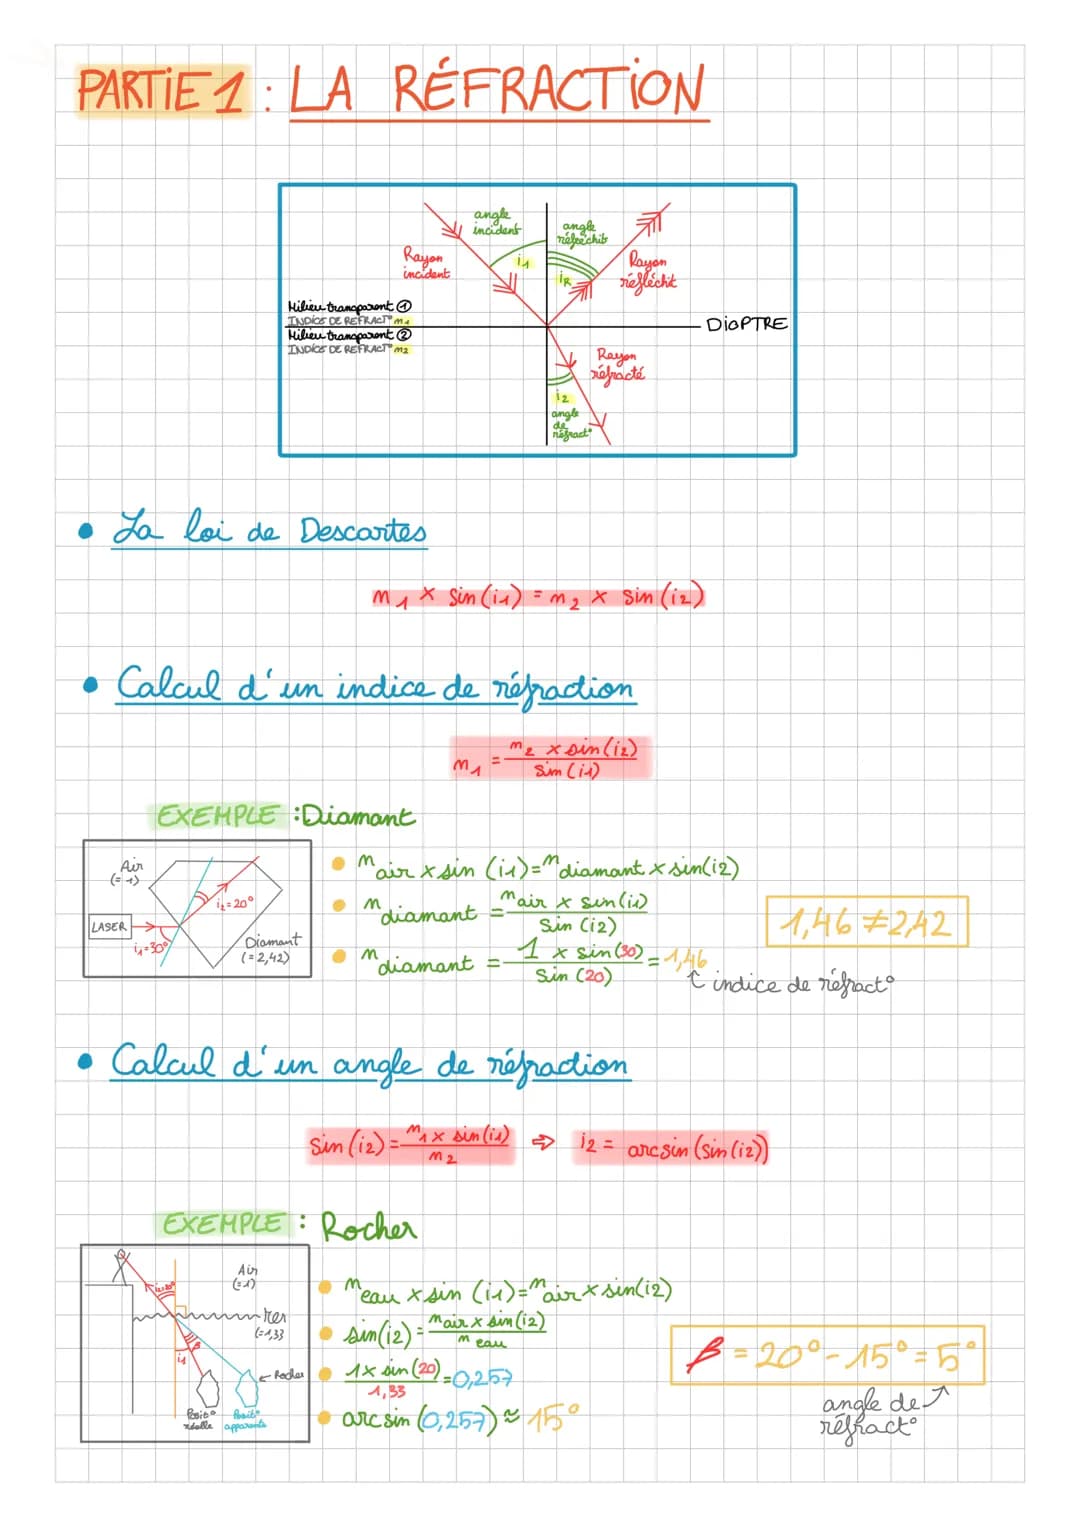 PARTIE 1 : LA RÉFRACTION
angle incident
angle réfléchit
Rayon incident
i1
iR
Rayon réfléchit
Milieu transparent ①
INDICE DE REFRACT° n1
DIOPTRE
Milieu transparent ②
INDICE DE REFRACT° n2
Rayon réfracté
i2
angle de réfract°
• La loi de Descartes
n1 × sin(i1) = n2 × sin(i2)
• Calcul d'un indice de réfraction
n1 = n2 × sin(i2) / sin(i1)
EXEMPLE : Diamant
Air
(=1)
i2=20°
LASER
i1=30°
Diamant
(=2,42)
• nair × sin (i1) = ndiamant × sin(i2)
• ndiamant = nair × sin(i1) / sin (i2)
• ndiamant = 1 × sin(30) / sin (20) = 1,46
↑ indice de réfract°
1,46 ≠ 2,42
• Calcul d'un angle de réfraction
sin(i2) = n1 × sin(i1) / n2 ⇨ i2 = arcsin(sin(i2))
EXEMPLE : Rocher
Air
(=1)
i2=20°
(=1,33
i1
β
← Rocher
Posit° réelle
Posit° apparente
• neau × sin (i1) = nair × sin(i2)
• sin(i2) = nair × sin(i2) / neau
• 1 × sin(20) / 1,33 = 0,257
• arcsin (0,257) ≈ 15°
β = 20° - 15° = 5°
angle de réfract°